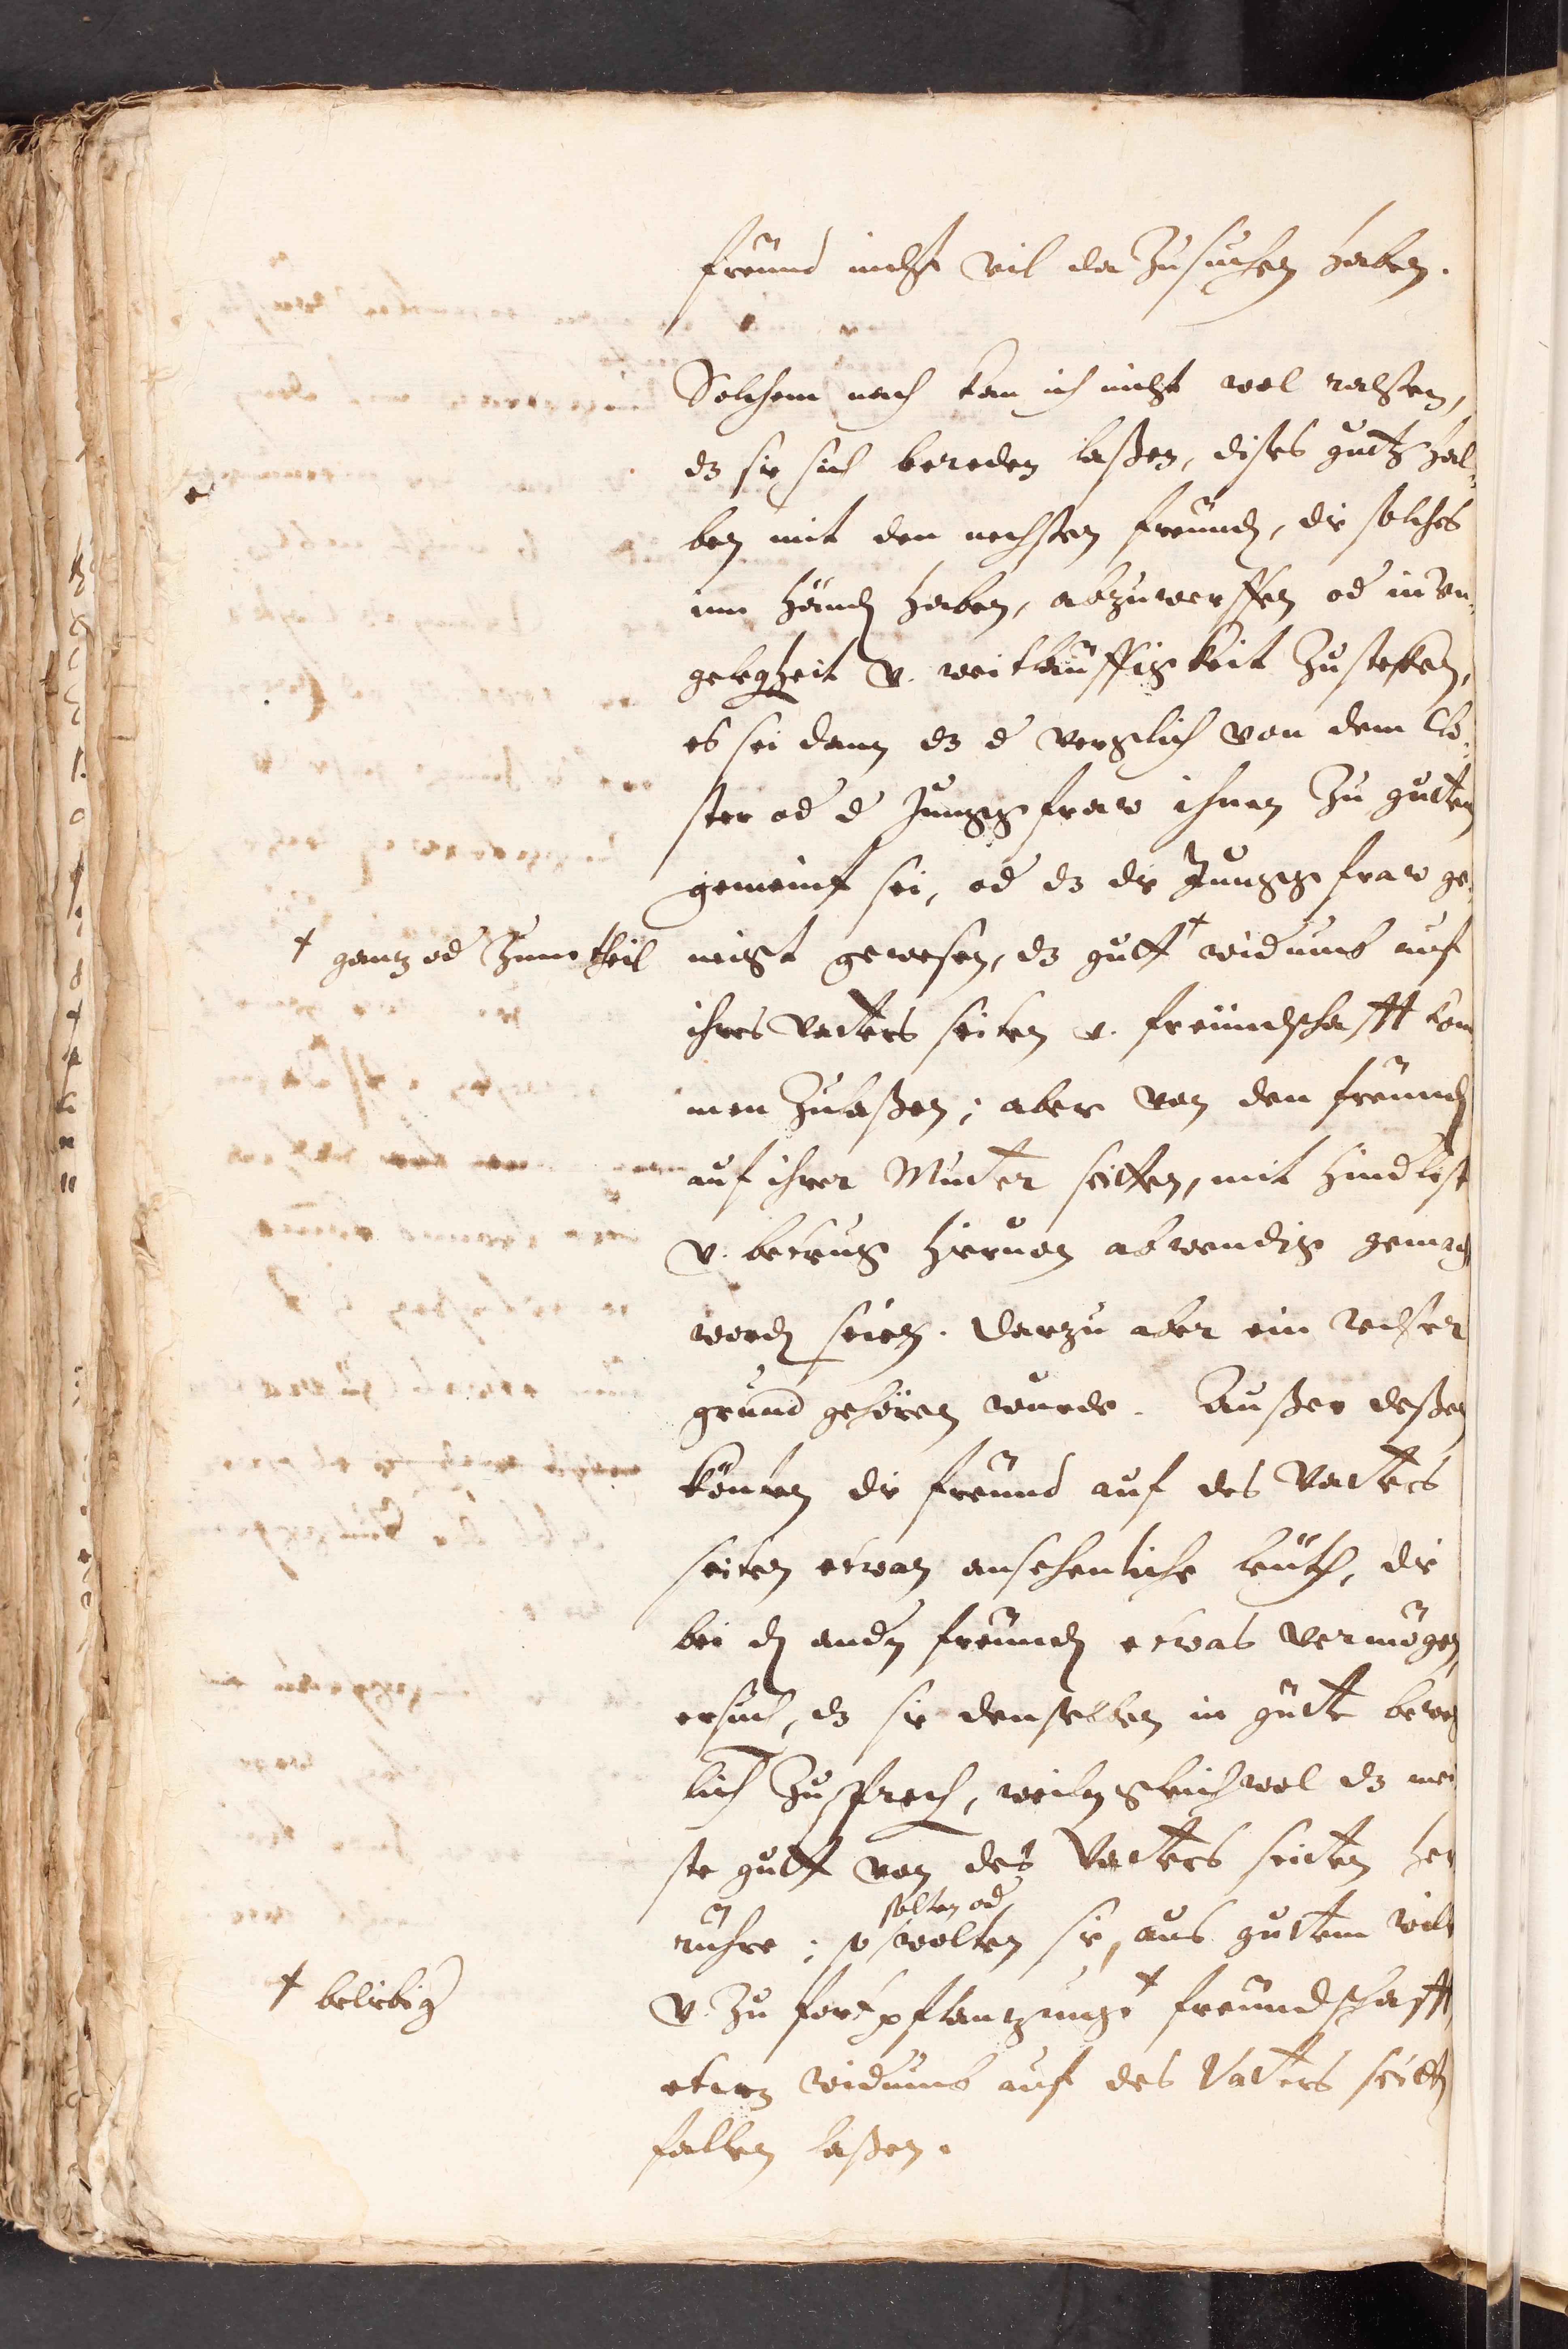 freünd nicht vil da Zusuchen haben.
Solchem nach kan ich nicht wol rahten,
dz sie sich bereden laßen, dises gutts hal-
ben mit den nechsten freunden, die solches
inn händen haben, abzuwerffen od in un-
gelegenheit v. weitläuffigkeit Zustecken,
es sei dann dz der vergleich von dem Clo-
ster od der Jungfraw ihnen Zu gutten
gemeint sei, od dz die Jungfraw ge-
neigt gewesen, dz gutt † widumb auf
† gantz od Zum theil
ihres Vatters seiten v. freündschafft kom
men Zulaßen; aber von den freunden
auf ihrer Mutter seitten, mit hindlist
v. betrug hieruon abwendig gemacht
worden seien. Darzu aber ein rechter
grund gehören wurde. Außer deßen
könten die freünd auf des Vatters
seiten etwan ansehenliche leüth, die
bei den andn freunden etwas vermögen,
ersuchen, dz sie denselben in gütte beweg
lich Zusprechen, weiln gleichwol dz mei
ste gutt von des Vatters seiten her
rühre; so wolten sie, aus guttem will
solten od
v. Zu fortpflantzung † freündschafft,
† beliebiger
etwz widumb auf des Vatters seitten
fallen laßen.